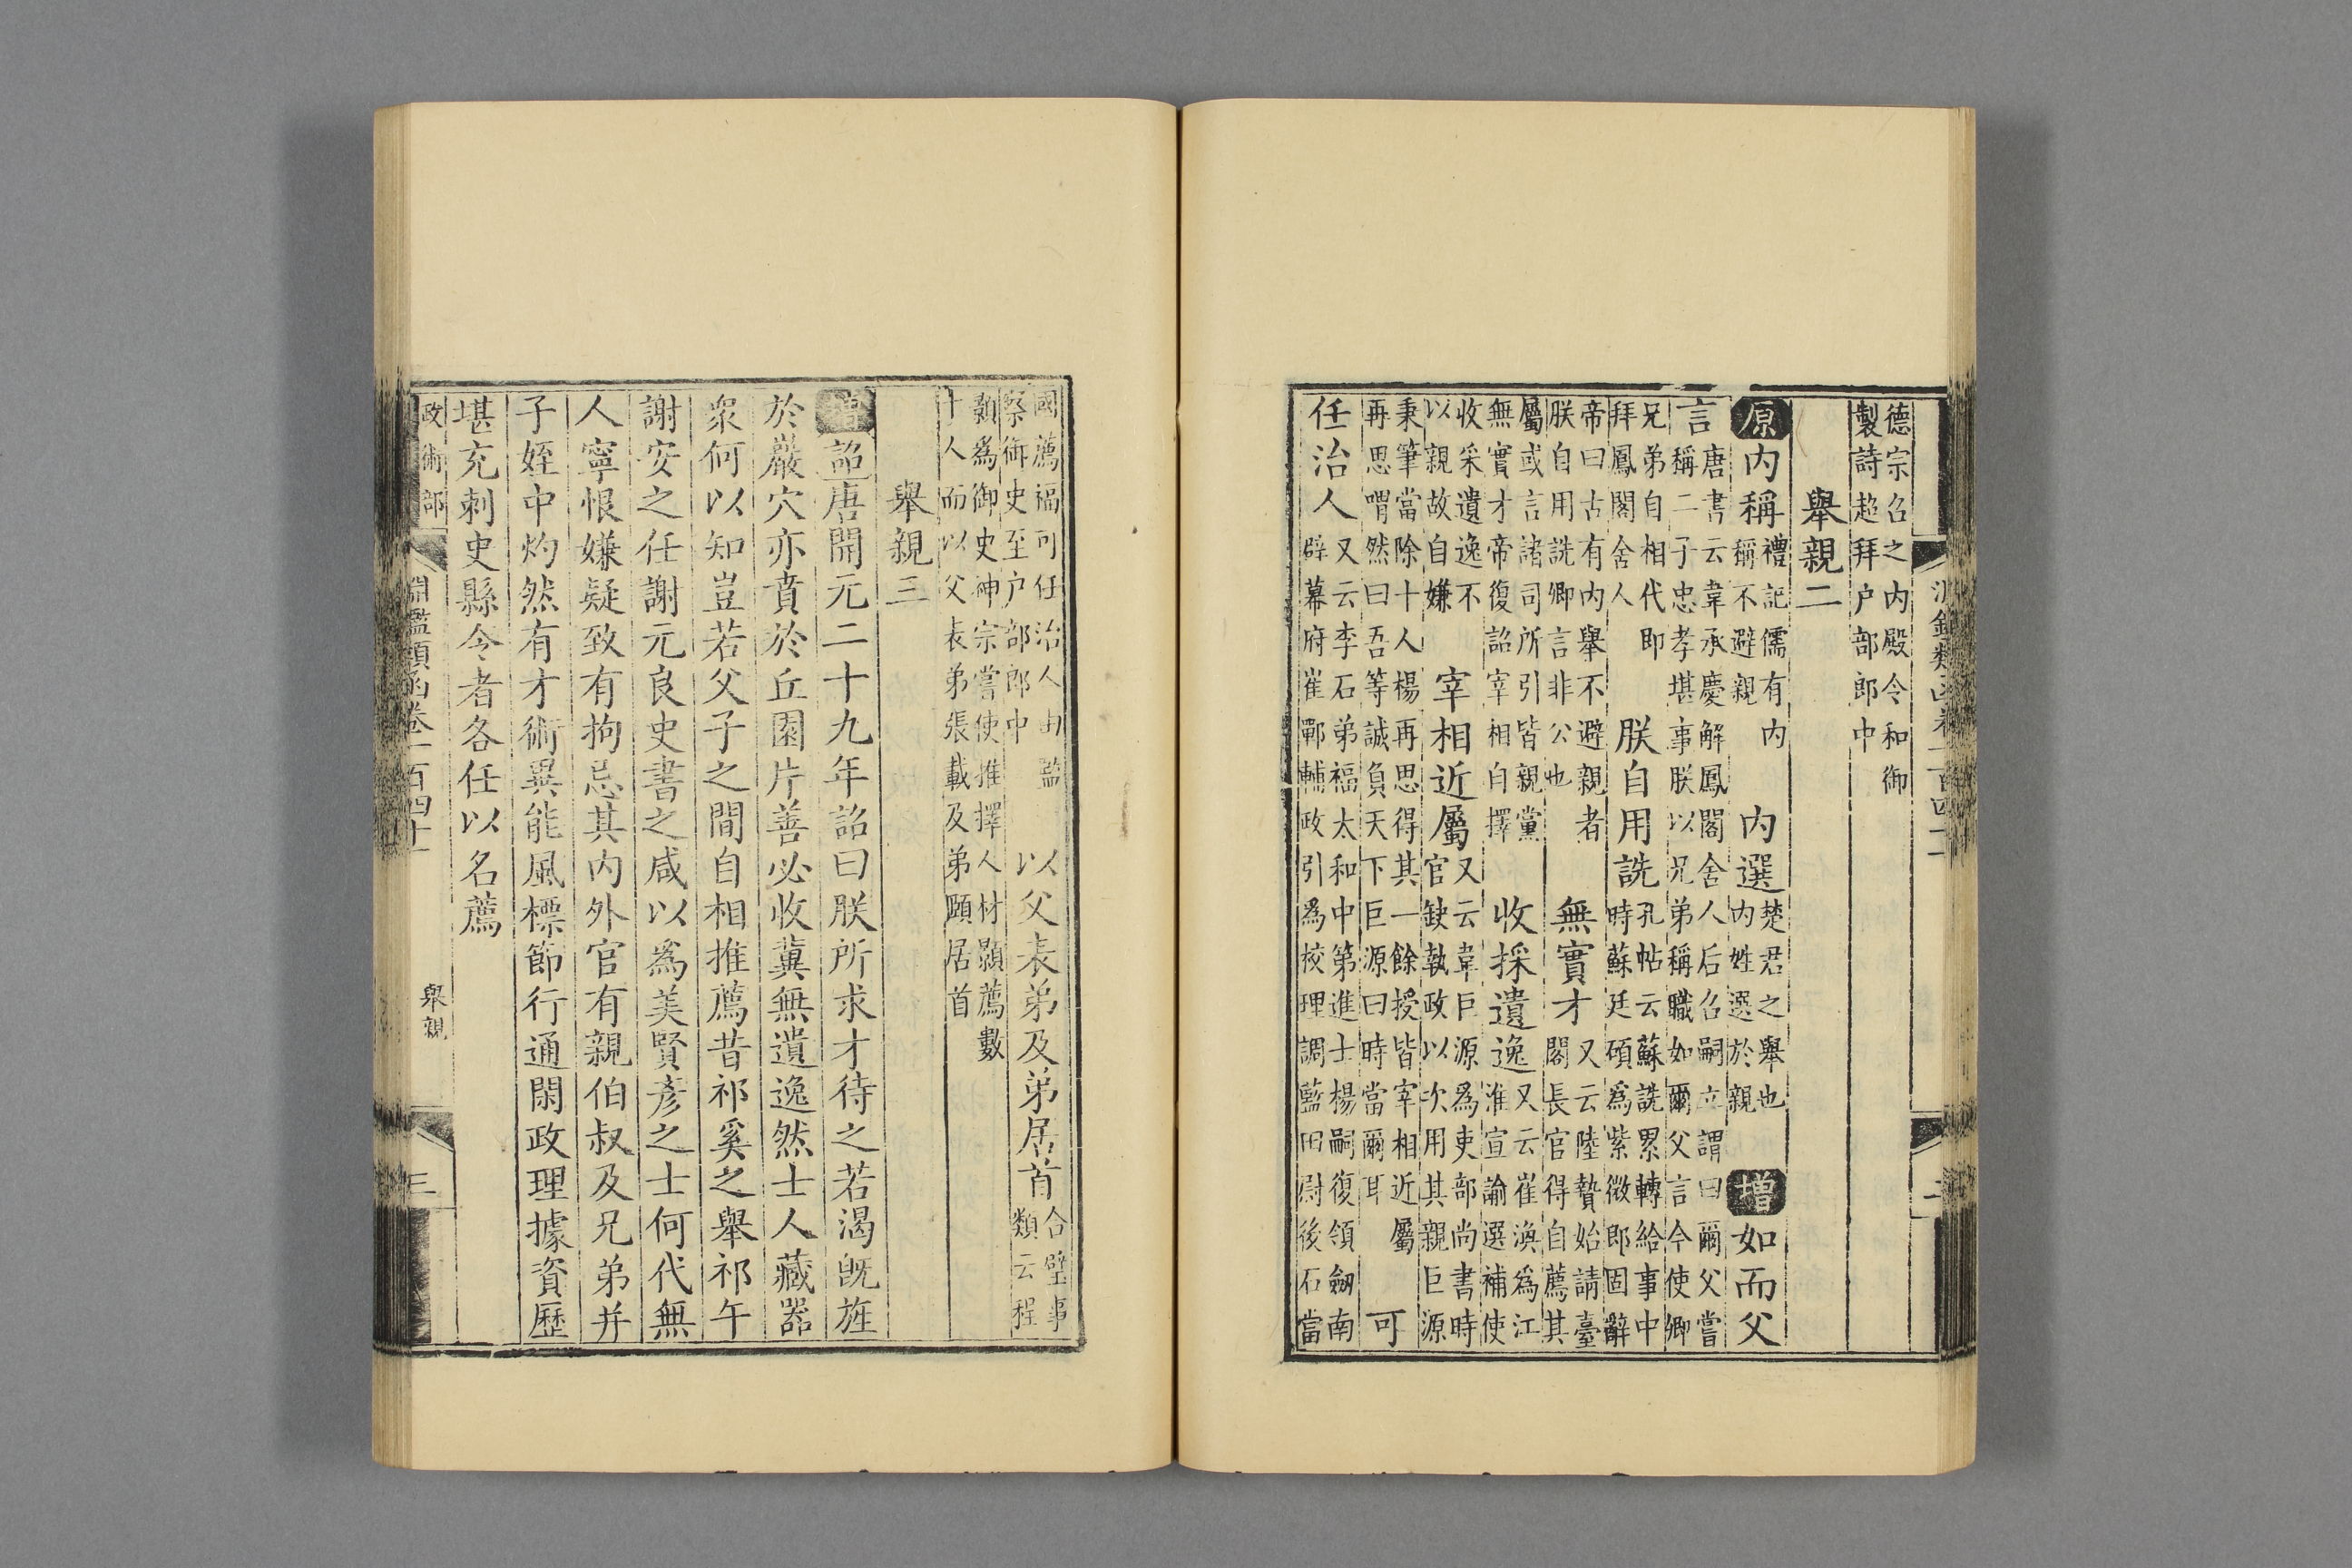 德宗召之內殿令和御
製詩超拜戸部郎中
舉親二
原內稱禮記儒有內稱不避親 內選楚君之舉也內姓選於親 增如而父
言唐書云韋承慶解鳳閣舍人后召嗣立謂曰爾父嘗稱二子忠孝堪事朕以兄弟稱職如爾父言今使卿
兄弟自相代即拜鳳閣舍人 朕自用詵孔帖云蘇詵累轉給事中時蘇廷碩爲紫微郎固辭
帝曰古有內舉不避親者朕自用詵卿言非公也 無實才又云陸贄始請臺閣長官得自薦其
屬或言諸司所引皆親黨無實才帝復詔宰相自擇 收採遺逸又云崔渙爲江淮宣諭選補使
收采遺逸不以親故自嫌 宰相近屬又云韋巨源爲吏部尚書時官缺執政以次用其親巨源
秉筆當除十人楊再思得其一餘授皆宰相近屬再思喟然曰吾等誠負天下巨源曰時當爾耳 可
任治人又云李石弟福太和中第進士楊嗣復領劒南辟幕府崔鄲輔政引爲校理調藍田尉後石當
國薦福可任治人由監察御史至戸部郎中 以父表弟及弟居首合璧事類云程
顥爲御史神宗嘗使推擇人材顥薦數
十人而以父表弟張載及弟頤居首
舉親三
增詔唐開元二十九年詔曰朕所求才待之若渴既旌
於巖穴亦賁於丘園片善必收冀無遺逸然士人藏器
衆何以知豈若父子之間自相推薦昔祁奚之舉祁午
謝安之任謝元良史書之咸以爲美賢彥之士何代無
人寧恨嫌疑致有拘忌其內外官有親伯叔及兄弟并
子姪中灼然有才術異能風標節行通閑政理據資歷
堪充刺史縣令者各任以名薦
政術部 淵鑑類函卷一百四十 舉親 三